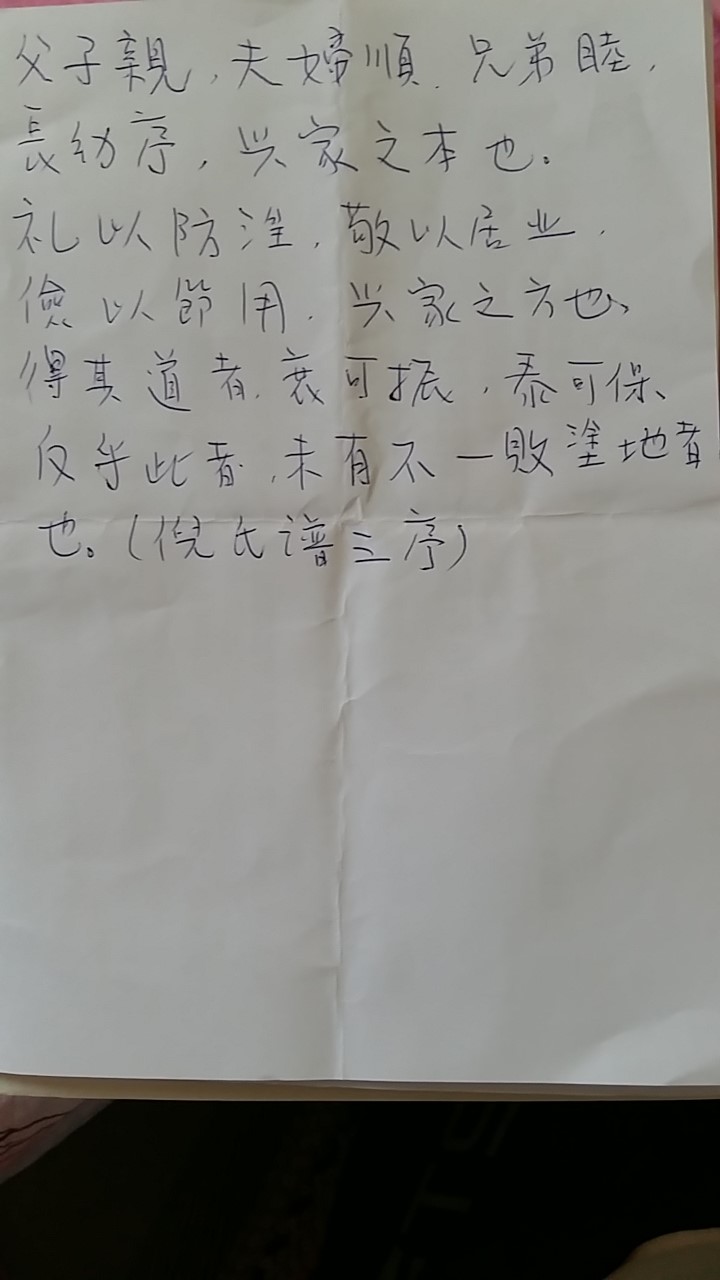 父子親，夫婦順．兄弟睦，
長幼序，兴家之本也。
礼以防淫，敬以居业，
儉以節用．兴家之方也、
得其道者，衰可振，泰可保、
反乎此者，未有不一敗塗地者
也。（倪氏谱三序）